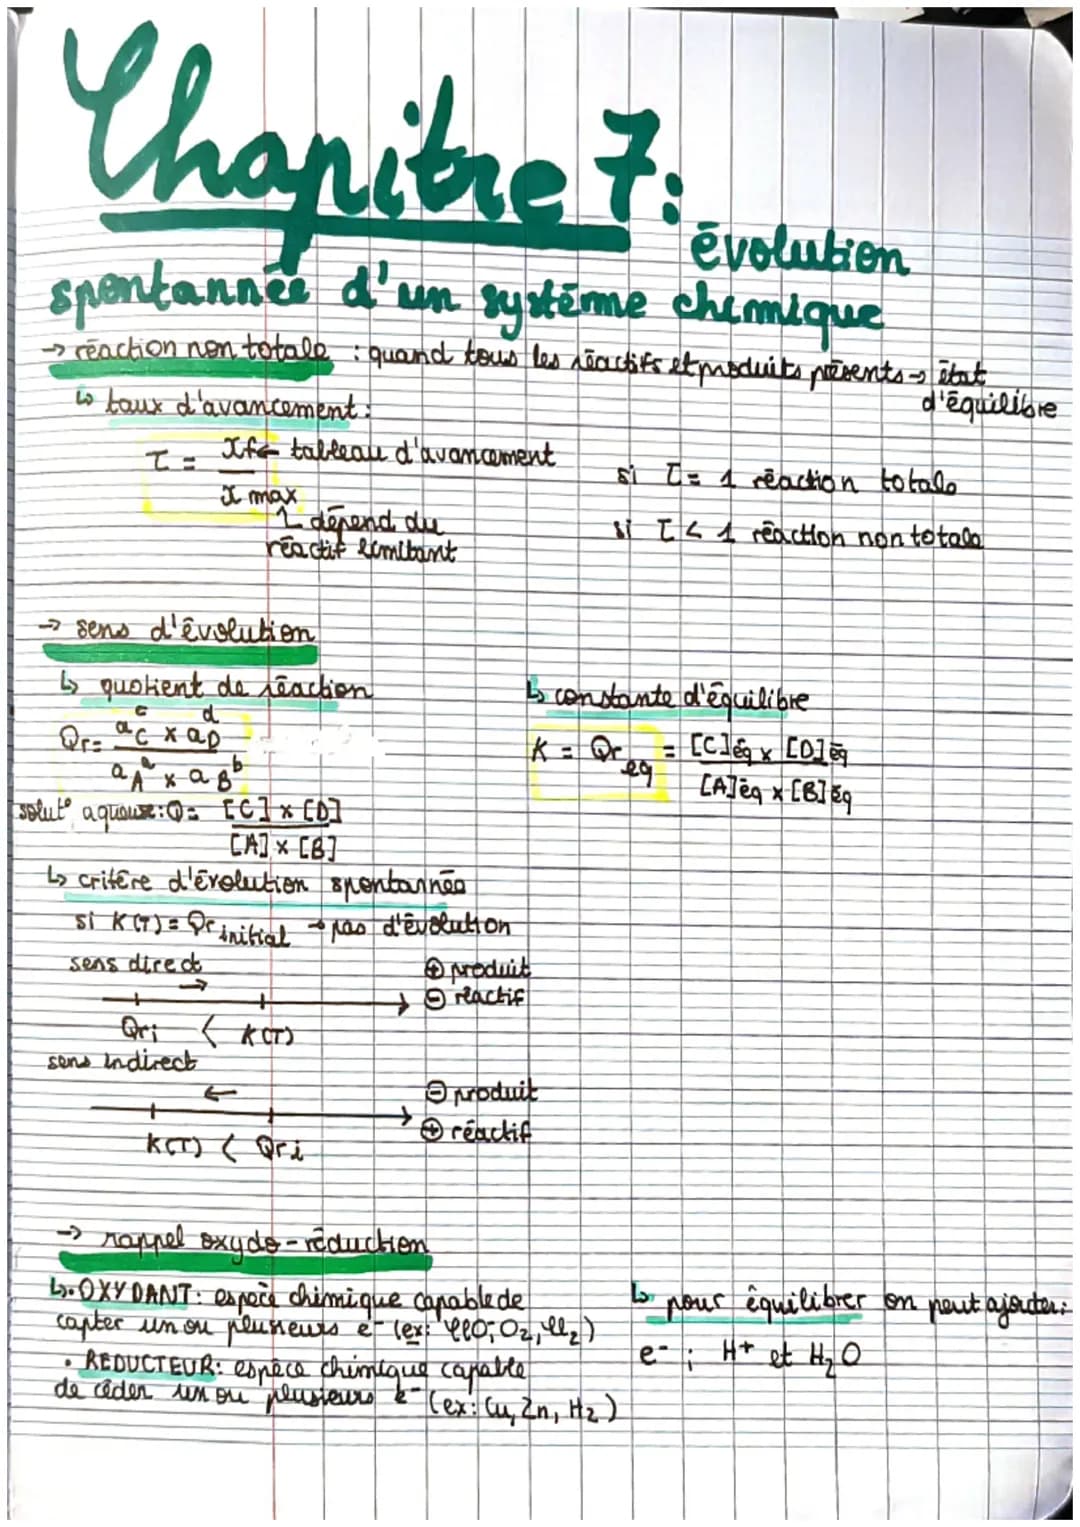 Chapitre 7:
évolution
spontannée d'un système chimique
→ réaction non totale : quand tous les réactifs et produits présents → état
d'équilibre
↳ taux d'avancement :
τ = xf ← tableau d'avancement
x max
↖ dépend du
réactif limitant
si τ = 1 réaction totale
si τ < 1 réaction non totale
→ sens d'évolution
↳ quotient de réaction
Qr = a_C^c × a_D^d
a_A^a × a_B^b
solut° aqueuse : Q = [C] × [D]
[A] × [B]
↳ constante d'équilibre
K = Qr eq = [C]éq × [D]éq
[A]éq × [B]éq
↳ critère d'évolution spontannée
si K(T) = Qr initial → pas d'évolution
sens direct
→
⊕ produit
⊖ réactif
Qri < K(T)
sens indirect
←
⊖ produit
⊕ réactif
K(T) < Qri
→ rappel oxydo-réduction
↳ • OXYDANT : espèce chimique capable de
capter un ou plusieurs e⁻ (ex: ClO⁻, O₂, Cl₂)
• REDUCTEUR : espèce chimique capable
de céder un ou plusieurs e⁻ (ex: Cu, Zn, H₂)
↳ pour équilibrer on peut ajouter :
e⁻ ; H+ et H₂O